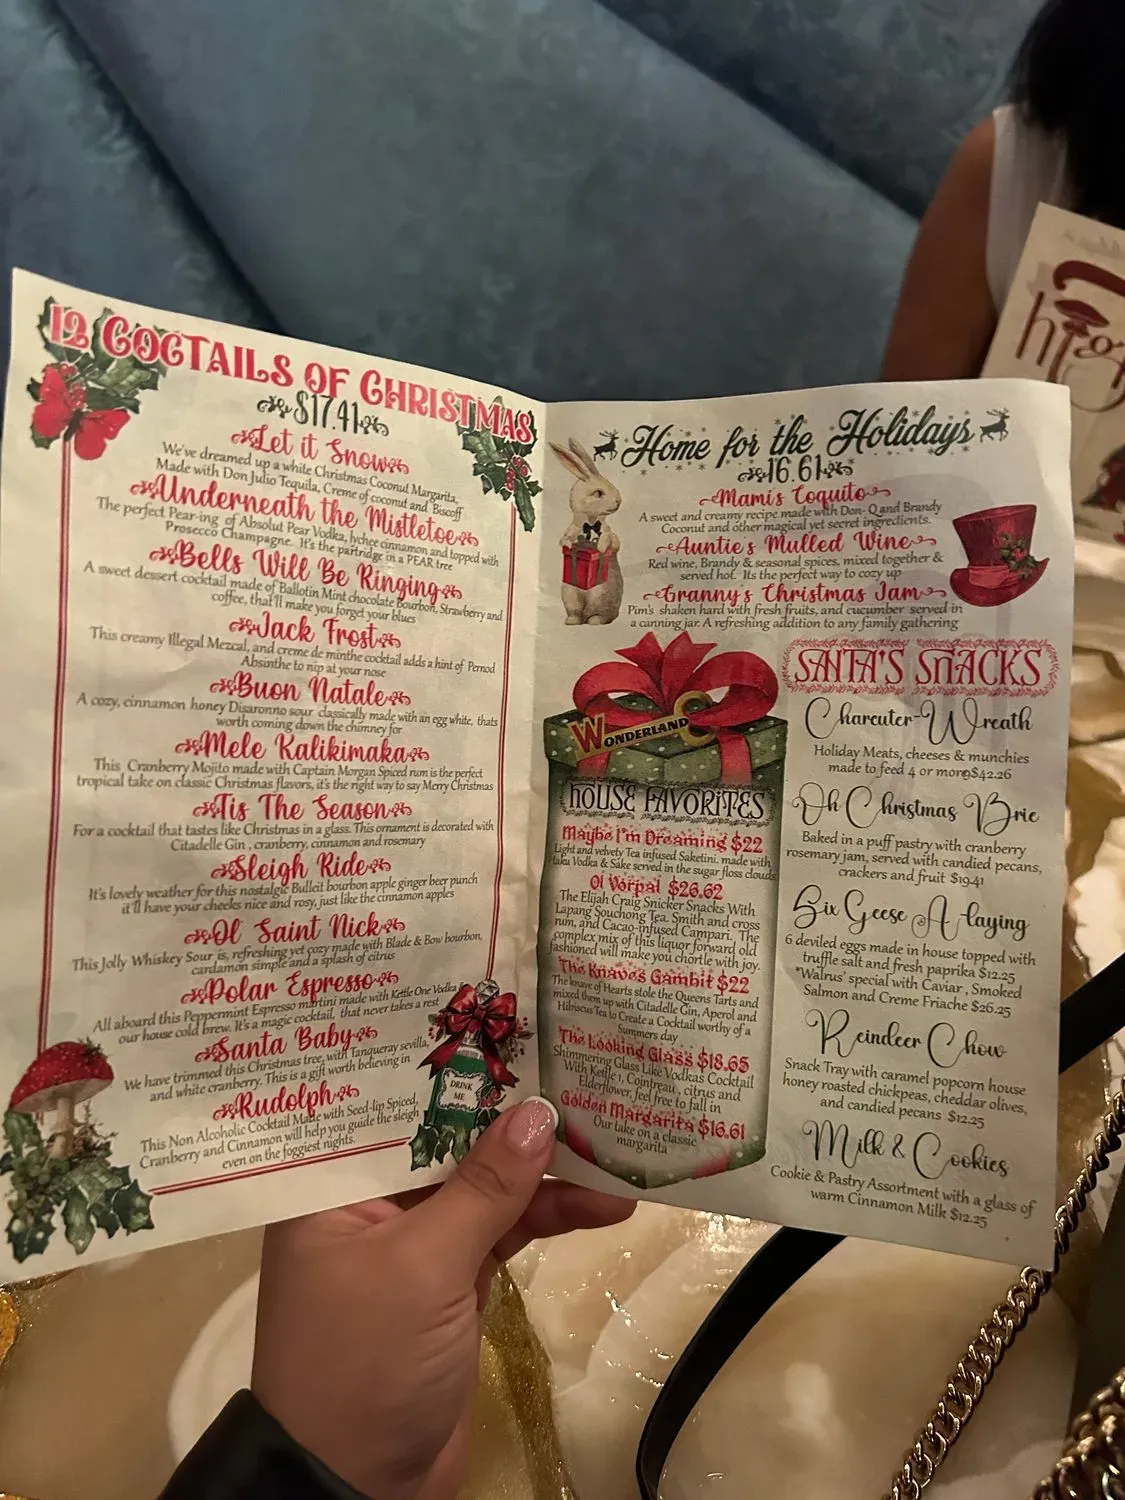 12 COCTAILS OF CHRISTMAS
$17.41
Let it Snow
We've dreamed up a white Christmas Coconut Margarita,
Made with Don Julio Tequila, Creme of coconut and Biscoff
Underneath the Mistletoe
The perfect Pear-ing of Absolut Pear Vodka, lychee cinnamon and topped with
Prosecco Champagne. It's the partridge in a PEAR tree
Bells Will Be Ringing
A sweet dessert cocktail made of Ballotin Mint chocolate Bourbon, Strawberry and
coffee, that'll make you forget your blues
Jack Frost
This creamy Illegal Mezcal, and creme de minthe cocktail adds a hint of Pernod
Absinthe to nip at your nose
Buon Natale
A cozy, cinnamon honey Disaronno sour classically made with an egg white, thats
worth coming down the chimney for
Mele Kalikimaka
This Cranberry Mojito made with Captain Morgan Spiced rum is the perfect
tropical take on classic Christmas flavors, it's the right way to say Merry Christmas
Tis The Season
For a cocktail that tastes like Christmas in a glass. This ornament is decorated with
Citadelle Gin, cranberry, cinnamon and rosemary
Sleigh Ride
It's lovely weather for this nostalgic Bulleit bourbon apple ginger beer punch
it'll have your cheeks nice and rosy, just like the cinnamon apples
Ol' Saint Nick
This Jolly Whiskey Sour is, refreshing yet cozy made with Blade & Bow bourbon,
cardamon simple and a splash of citrus
Polar Espresso
All aboard this Peppermint Espresso martini made with Kettle One Vodka &
our house cold brew. It's a magic cocktail, that never takes a rest
Santa Baby
We have trimmed this Christmas tree, with Tanqueray sevilla,
and white cranberry. This is a gift worth believing in
Rudolph
This Non Alcoholic Cocktail Made with Seed-lip Spiced,
Cranberry and Cinnamon will help you guide the sleigh
even on the foggiest nights.
DRINK
ME
Home for the Holidays
16.61
Mami's Coquito
A sweet and creamy recipe made with Don-Q and Brandy
Coconut and other magical yet secret ingredients.
Auntie's Mulled Wine
Red wine, Brandy & seasonal spices, mixed together &
served hot. Its the perfect way to cozy up
Granny's Christmas Jam
Pim's shaken hard with fresh fruits, and cucumber served in
a canning jar. A refreshing addition to any family gathering
WONDERLAND
HOUSE FAVORITES
Maybe I'm Dreaming $22
Light and velvety Tea infused Saketini, made with
Haku Vodka & Sake served in the sugar floss clouds
Ol Vorpal $26.62
The Elijah Craig Snicker Snacks With
Lapang Souchong Tea. Smith and cross
rum, and Cacao-infused Campari. The
complex mix of this liquor forward old
fashioned will make you chortle with joy.
The Knaves Gambit $22
The knave of Hearts stole the Queens Tarts and
mixed them up with Citadelle Gin, Aperol and
Hibiscus Tea to Create a Cocktail worthy of a
Summers day
The Looking Glass $18.65
Shimmering Glass Like Vodkas Cocktail
With Kettle 1, Cointreau, citrus and
Elderflower, feel free to fall in
Golden Margarita $16.61
Our take on a classic
margarita
SANTA'S SNACKS
Charcuter-Wreath
Holiday Meats, cheeses & munchies
made to feed 4 or more$42.26
Oh Christmas Brie
Baked in a puff pastry with cranberry
rosemary jam, served with candied pecans,
crackers and fruit $19.41
Six Geese A-laying
6 deviled eggs made in house topped with
truffle salt and fresh paprika $12.25
"Walrus' special with Caviar, Smoked
Salmon and Creme Friache $26.25
Reindeer Chow
Snack Tray with caramel popcorn house
honey roasted chickpeas, cheddar olives,
and candied pecans $12.25
Milk & Cookies
Cookie & Pastry Assortment with a glass of
warm Cinnamon Milk $12.25